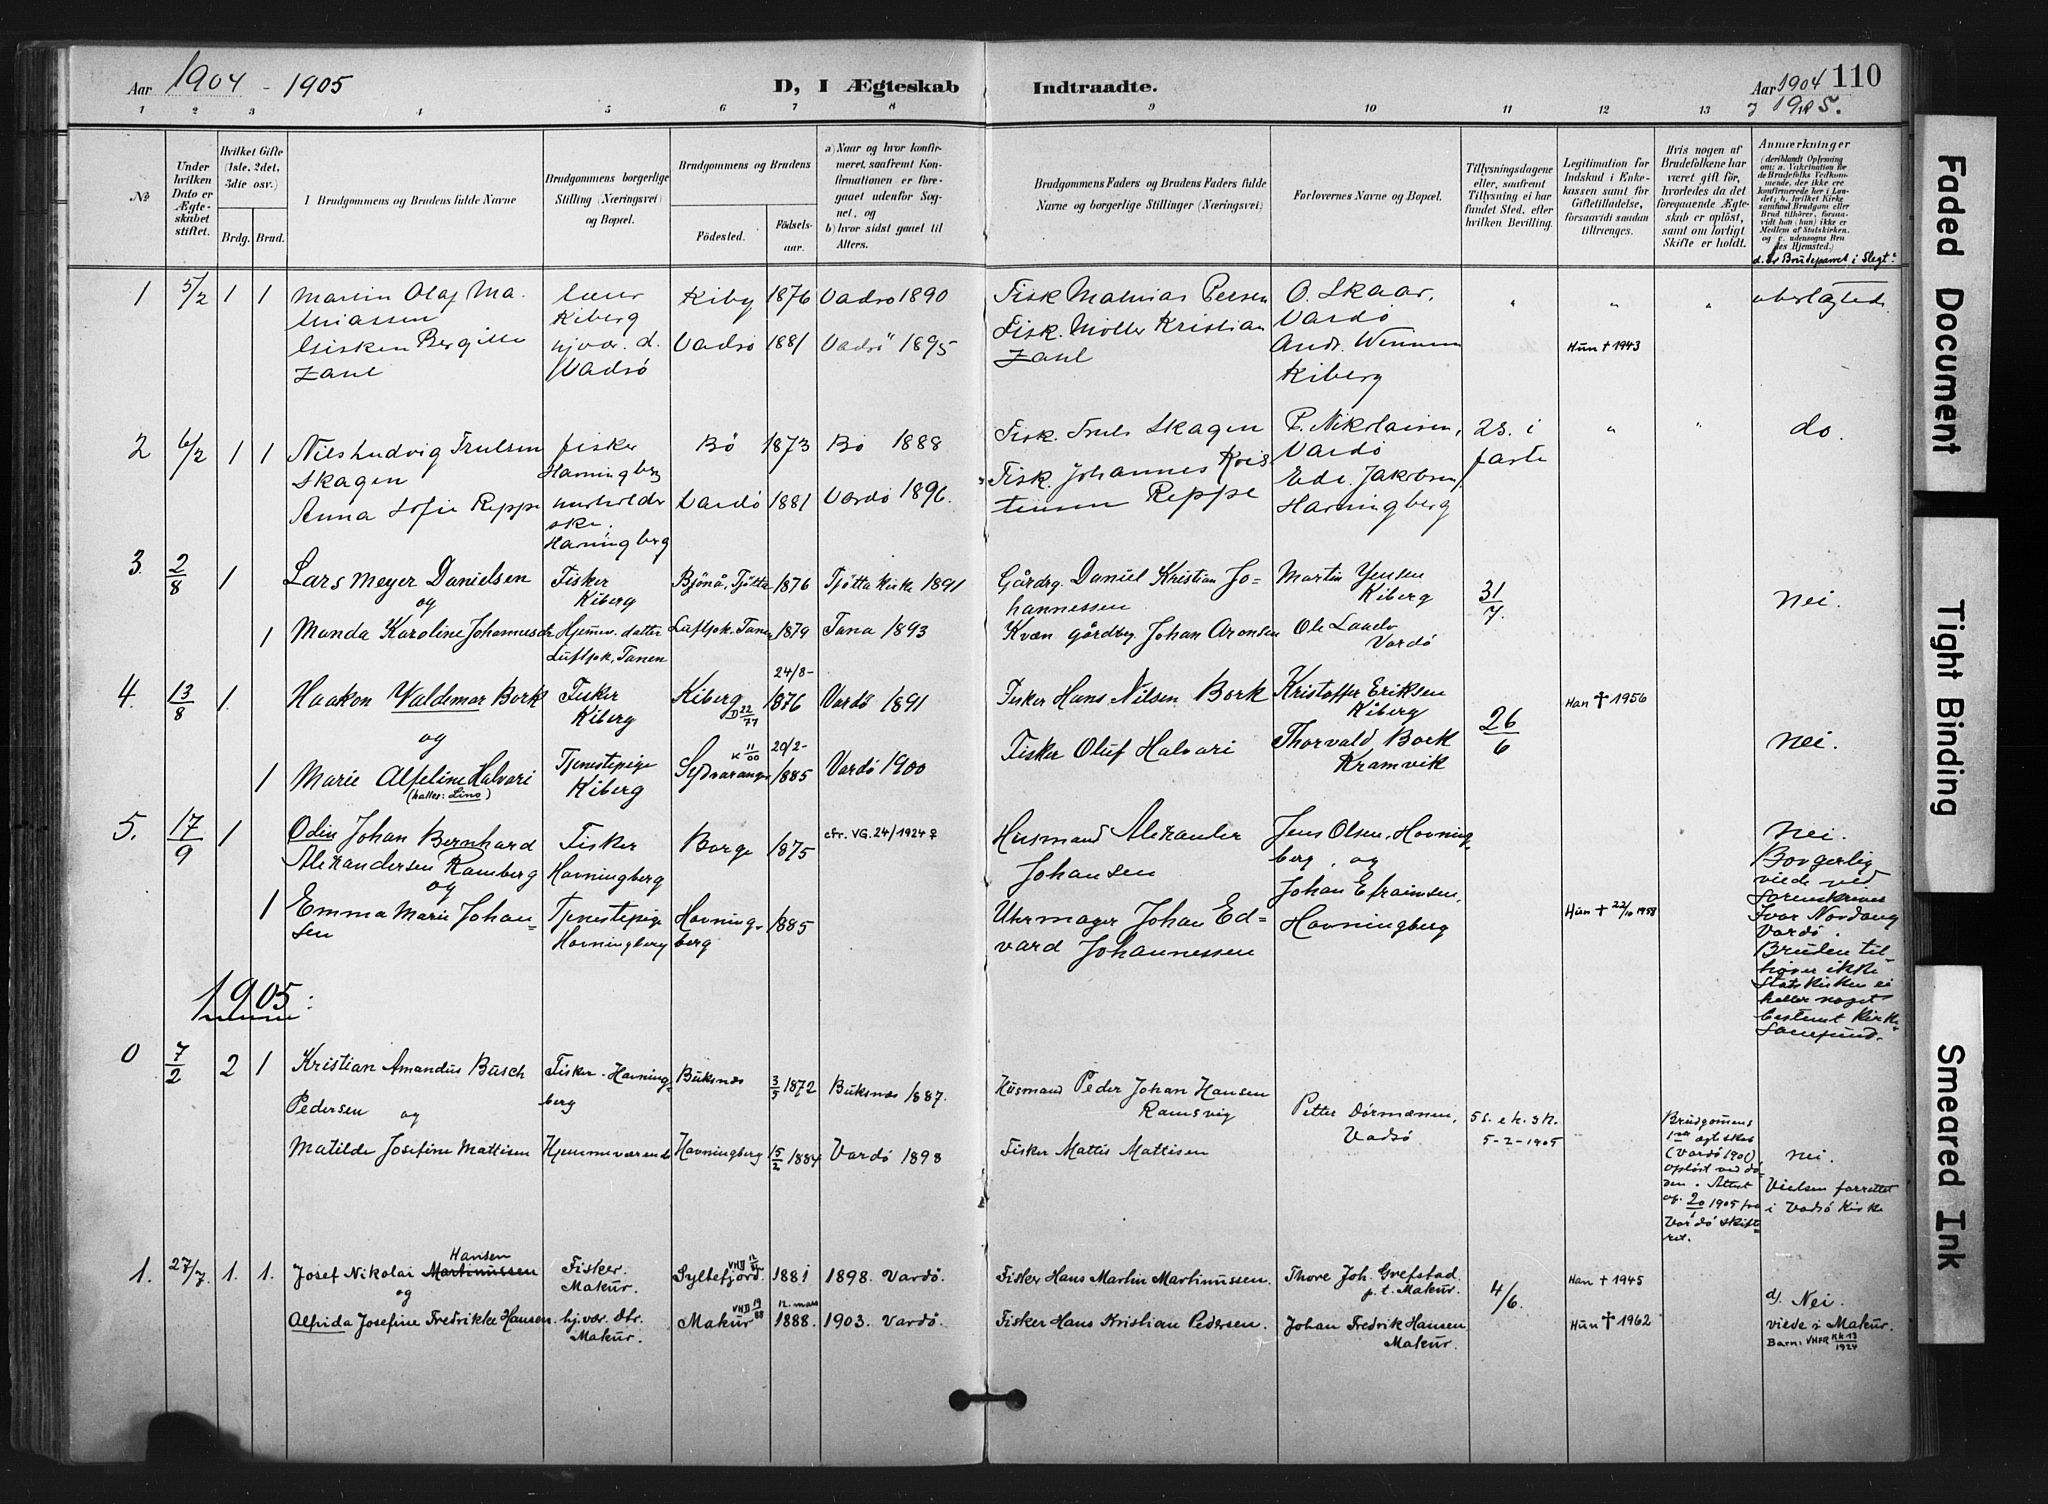 Aar 1904 - 1905
D, I Ægteskab Indtraadte.
Aar 1904 110
1905.
1 2 3 4 5 6 7 8 9 10 11 12 13
No
Under hvilken Dato er Ægteskabet stiftet.
Hvilket Gifte (1ste, 2det, 3die osv.)
Brdg. Brud.
Brudgommens og Brudens fulde Navne
Brudgommens borgerlige Stilling (Næringsvei) og Bopæl.
Brudgommens og Brudens
Fødested. Fødselsaar.
a) Naar og hvor konfirmeret, saafremt Konfirmationen er foregaaet udenfor Sognet, og
b) hvor sidst gaaet til Alters.
Brudgommens Faders og Brudens Faders fulde Navne og borgerlige Stillinger (Næringsvei)
Forlovernes Navne og Bopæl.
Tillysningsdagene eller, saafremt Tillysning ei har fundet Sted, efter hvilken Bevilling.
Legitimation for Indskud i Enkekassen samt for Giftetilladelse, forsaavidt saadan tiltrænges.
Hvis nogen af Brudefolkene har været gift før, hvorledes da det foregaaende Ægteskab er opløst, samt om lovligt Skifte er holdt.
Anmærkninger
d. Er Brudeparret i Slegt?
1 5/2 1 1 Martin Olaf Mathiassen
Kiberg Kiby 1876 Vadsø 1890
Fisk Mathias Peersen
O. Skaar, Vardø
Bergitte Zahl
Vadsø Vadsø 1881 Vadsø 1895
Fisk. Møller Kristian Zahl
Andr. Kiberg
Hun + 1943
2 6/2 1 1 Nils Ludvig Trulsen Skagen
fisker Havningberg Bø 1873 Bø 1888
Fisk. Truls Skagen
P. Nikolaisen, Vardø
2 s. i faste
do.
Anna Sofie Reppe
Havningberg Vardø 1881 Vardø 1896.
Fisk. Johannes Kristensen Reppe
Edv. Jakobsen Havningberg
3. 2/8 1 Lars Meyer Danielsen
og
Fisker Kiberg Bjönå, Tjötta 1876 Tjøtta Kirke 1891
Gårdrg. Daniel Kristian Johannessen
Martin Jensen Kiberg
31/7.
nei.
1 Manda Karoline Johannesdr.
Hjemmev. datter Luftjok, Tanen Luftjok. Tanen 1879 Tana 1893
Kvæn gårdbrg. Johan Aronsen
Ole Vardø
4. 13/8 1. Haakon Valdemar Bork
og
Fisker Kiberg Kiberg D 22/77 24/8- 1876 Vardø 1891
Fisker Hans Nilsen Bork
Kristoffer Eriksen Kiberg
26/6
Han ✝ 1956
nei.
1 Marie Alfeline Halvari
(kaltes: Lina)
Tjenestepige Kiberg Sydvaranger K 11/00 20/2- 1885 Vardø 1900
Fisker Oluf Halvari
Thorvald Bork Kramvik
5. 17/9 1 Odin Johan Bernhard Alexandersen Ramberg
og
Fisker Havningberg Borge 1875 cfr. VG. 24/1924 ♀
Husmand Alexander Johansen
Jens Olsen, Havningberg, og
nei.
Borgerlig viede ved Sorenskriver Ivar Nordang Vardø. Bruden tilhører ikke Statskirken ei heller noget bestemt Kirkesamfund.
1 Emma Marie Johansen
Tjenestepige Havningberg Havningberg 1885
Uhrmager Johan Edvard Johannessen
Johan Efraimsen, Havningberg
Hun + 22/10 1958
1905:
0 7/2 2 1 Kristian Amandus Busch Pedersen og
Fisker - Havningberg Buksnæs 3/5 1872 Buksnæs 1887.
Husmand Peder Johan Hansen Ramsvig
Petter Dørmænen, Vadsø
5 s. e. h. 3 k. 5-2-1905
Brudgomens 1ste ægteskab (Vardø 1901) opløst ved døden. Attest af 20/1 1905 fra Vardø skifteret.
nei.
Vielsen forrettet i Vadsø Kirke
Matilde Josefine Mattisen
Hjemmeværende Havningberg 15/2 1884 Vardø 1898
Fisker Mattis Mattisen
1. 27/7. 1. 1. Josef Nikolai Martinussen Hansen
og
Fisker. Makur. Syltefjord. 1881 1898. Vardø.
Fisker Hans Martin Martinussen.
Thore Joh. Grefstad. p. t. Makur.
4/6.
Han + 1945
d) Nei.
viede i Makur.
Barn: VHFR KK 13/1924
Alfrida Josefine Fredrikke Hansen.
hj.vær. dtr. Makur. Makur VHD 19/88 12. mars 1888. 1903. Vardø.
Fisker Hans Kristian Pedersen.
Johan Fredrik Hansen Makur.
Hun ✝ 1962
Faded Document
Tight Binding
Smeared Ink